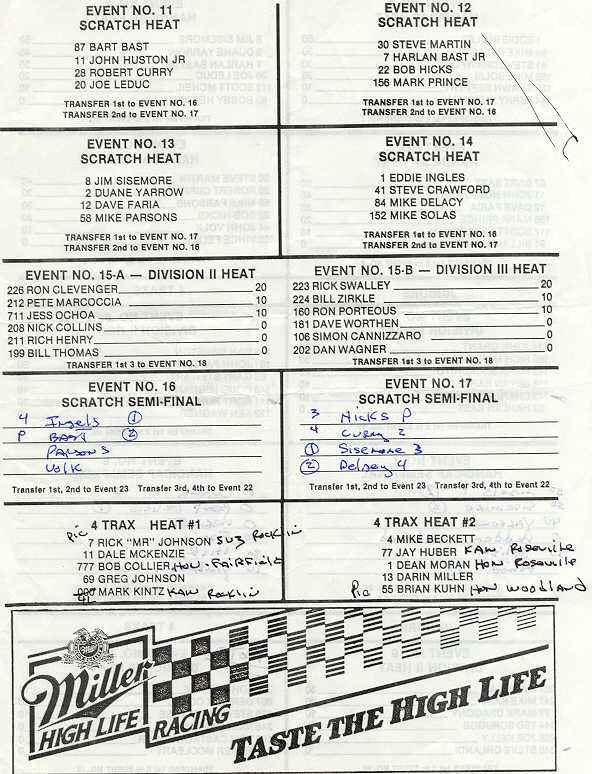 EVENT NO. 11
SCRATCH HEAT
87 BART BAST
11 JOHN HUSTON JR
28 ROBERT CURRY
20 JOE LEDUC
TRANSFER 1st to EVENT NO. 16
TRANSFER 2nd to EVENT NO. 17
EVENT NO. 12
SCRATCH HEAT
30 STEVE MARTIN
7 HARLAN BAST JR
22 BOB HICKS
156 MARK PRINCE
TRANSFER 1st to EVENT NO. 17
TRANSFER 2nd to EVENT NO. 16
EVENT NO. 13
SCRATCH HEAT
8 JIM SISEMORE
2 DUANE YARROW
12 DAVE FARIA
58 MIKE PARSONS
TRANSFER 1st to EVENT NO. 17
TRANSFER 2nd to EVENT NO. 16
EVENT NO. 14
SCRATCH HEAT
1 EDDIE INGLES
41 STEVE CRAWFORD
84 MIKE DELACY
152 MIKE SOLAS
TRANSFER 1st to EVENT NO. 16
TRANSFER 2nd to EVENT NO. 17
EVENT NO. 15-A — DIVISION II HEAT
226 RON CLEVENGER 20
212 PETE MARCOCCIA 10
711 JESS OCHOA 10
208 NICK COLLINS 0
211 RICH HENRY 0
199 BILL THOMAS 0
TRANSFER 1st 3 to EVENT NO. 18
EVENT NO. 15-B — DIVISION III HEAT
223 RICK SWALLEY 20
224 BILL ZIRKLE 10
160 RON PORTEOUS 10
181 DAVE WORTHEN 0
106 SIMON CANNIZZARO 0
202 DAN WAGNER 0
TRANSFER 1st 3 to EVENT NO. 18
EVENT NO. 16
SCRATCH SEMI-FINAL
4 Ingels 1
P BAST 2
PARSONS
Volk
Transfer 1st, 2nd to Event 23 Transfer 3rd, 4th to Event 22
EVENT NO. 17
SCRATCH SEMI-FINAL
3 HICKS P
4 Curry 2
1 Sisemore 3
2 Delacy 4
Transfer 1st, 2nd to Event 23 Transfer 3rd, 4th to Event 22
4 TRAX HEAT #1
Pic
7 RICK "MR" JOHNSON SUZ Rocklin
11 DALE MCKENZIE
777 BOB COLLIER HON - FAIRFIELD
69 GREG JOHNSON
MARK KINTZ KAW Rocklin
4 TRAX HEAT #2
4 MIKE BECKETT
77 JAY HUBER KAW Roseville
1 DEAN MORAN HON Roseville
13 DARIN MILLER
Pic 55 BRIAN KUHN HON WOODLAND
Miller
HIGH LIFE
RACING
TASTE THE HIGH LIFE